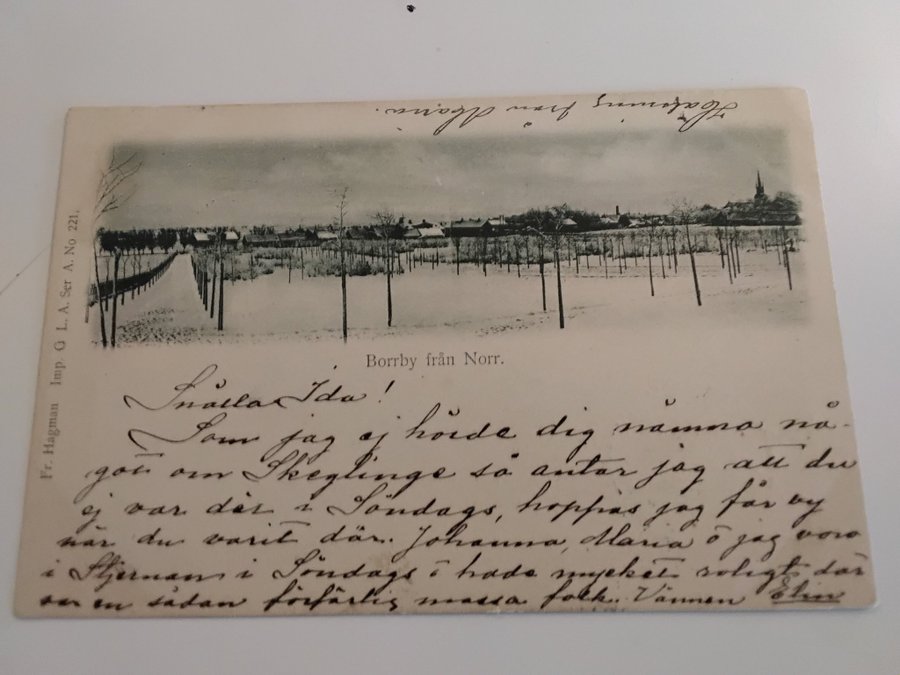 Halsning från Maria.
Fr. Hagman Imp. G L. A. Ser A. No 221.
Borrby från Norr.
Snälla Ida!
Som jag ej hörde dig nämna nå-
got om Skeglinge så antar jag att du
ej var der i Söndags, hoppas jag får vy
när du varit där. Johanna, Maria o jag voro
i Stjernan i Söndags o hade mycket roligt där
var en sådan förfärlig massa folk. Vännen Elin